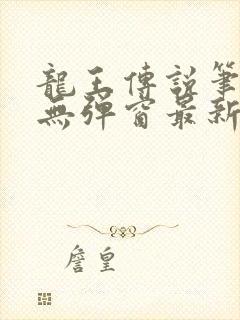 龍王傳說筆
無彈窗最新
詹皇